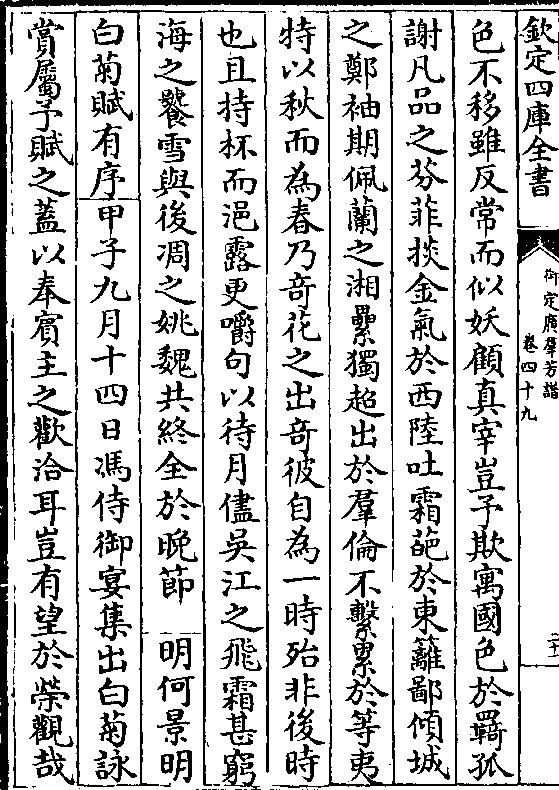 欽定四庫全書
御定廣羣芳譜
卷四十九
二十一
色不移雖反常而似妖顧真宰豈予欺寓國色於羇孤
謝凡品之芬菲掞金氣於西陸吐霜葩於東籬鄙傾城
之鄭袖期佩蘭之湘纍獨超出於羣倫不繫累於等夷
特以秋而為春乃竒花之出竒彼自為一時殆非後時
也且持杯而浥露更嚼句以待月儘吳江之飛霜甚窮
海之饕雪與後凋之姚魏共終全於晚節　明何景明
白菊賦有序甲子九月十四日馮侍御宴集出白菊詠
賞屬予賦之蓋以奉賓主之歡洽耳豈有望於榮觀哉